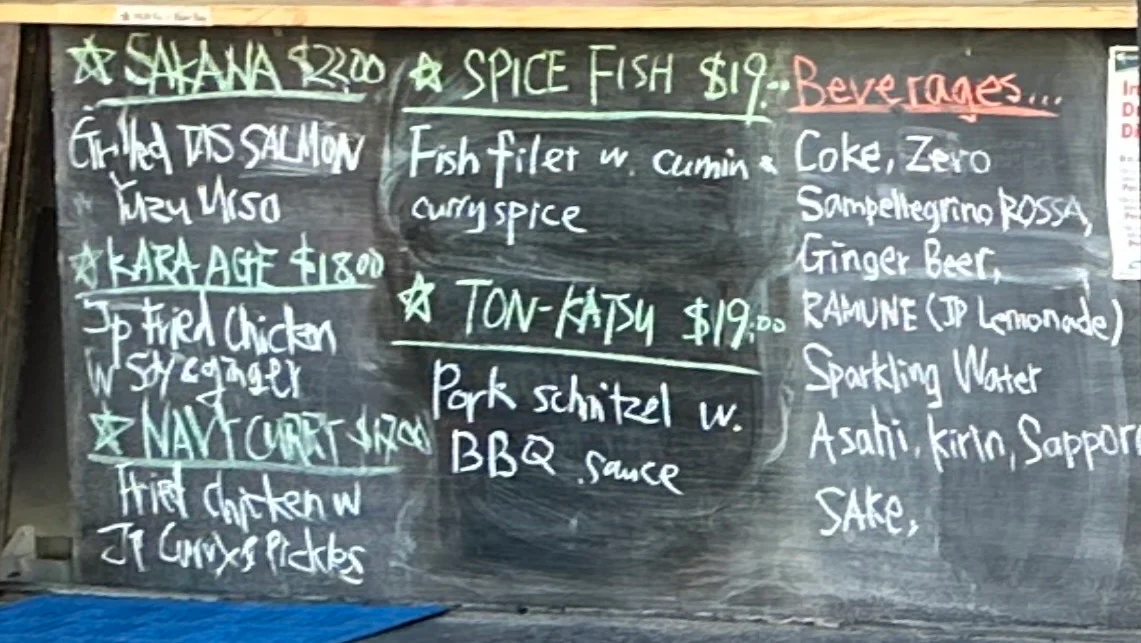 ☆ SAKANA $22.00
Grilled TAS SALMON
Yuzu Miso
☆ KARA-AGE $18.00
Jp Fried Chicken
w Soy & ginger
☆ NAVY CURRY $17.00
Fried chicken w
JP Curry & Pickles
☆ SPICE FISH $19.--
Fish filet w. cumin &
curry spice
☆ TON-KATSU $19.00
Pork schnitzel w.
BBQ sauce
Beverages...
Coke, Zero
Sampellegrino ROSSA,
Ginger Beer,
RAMUNE (JP Lemonade)
Sparkling Water
Asahi, kirin, Sappor
SAKe,